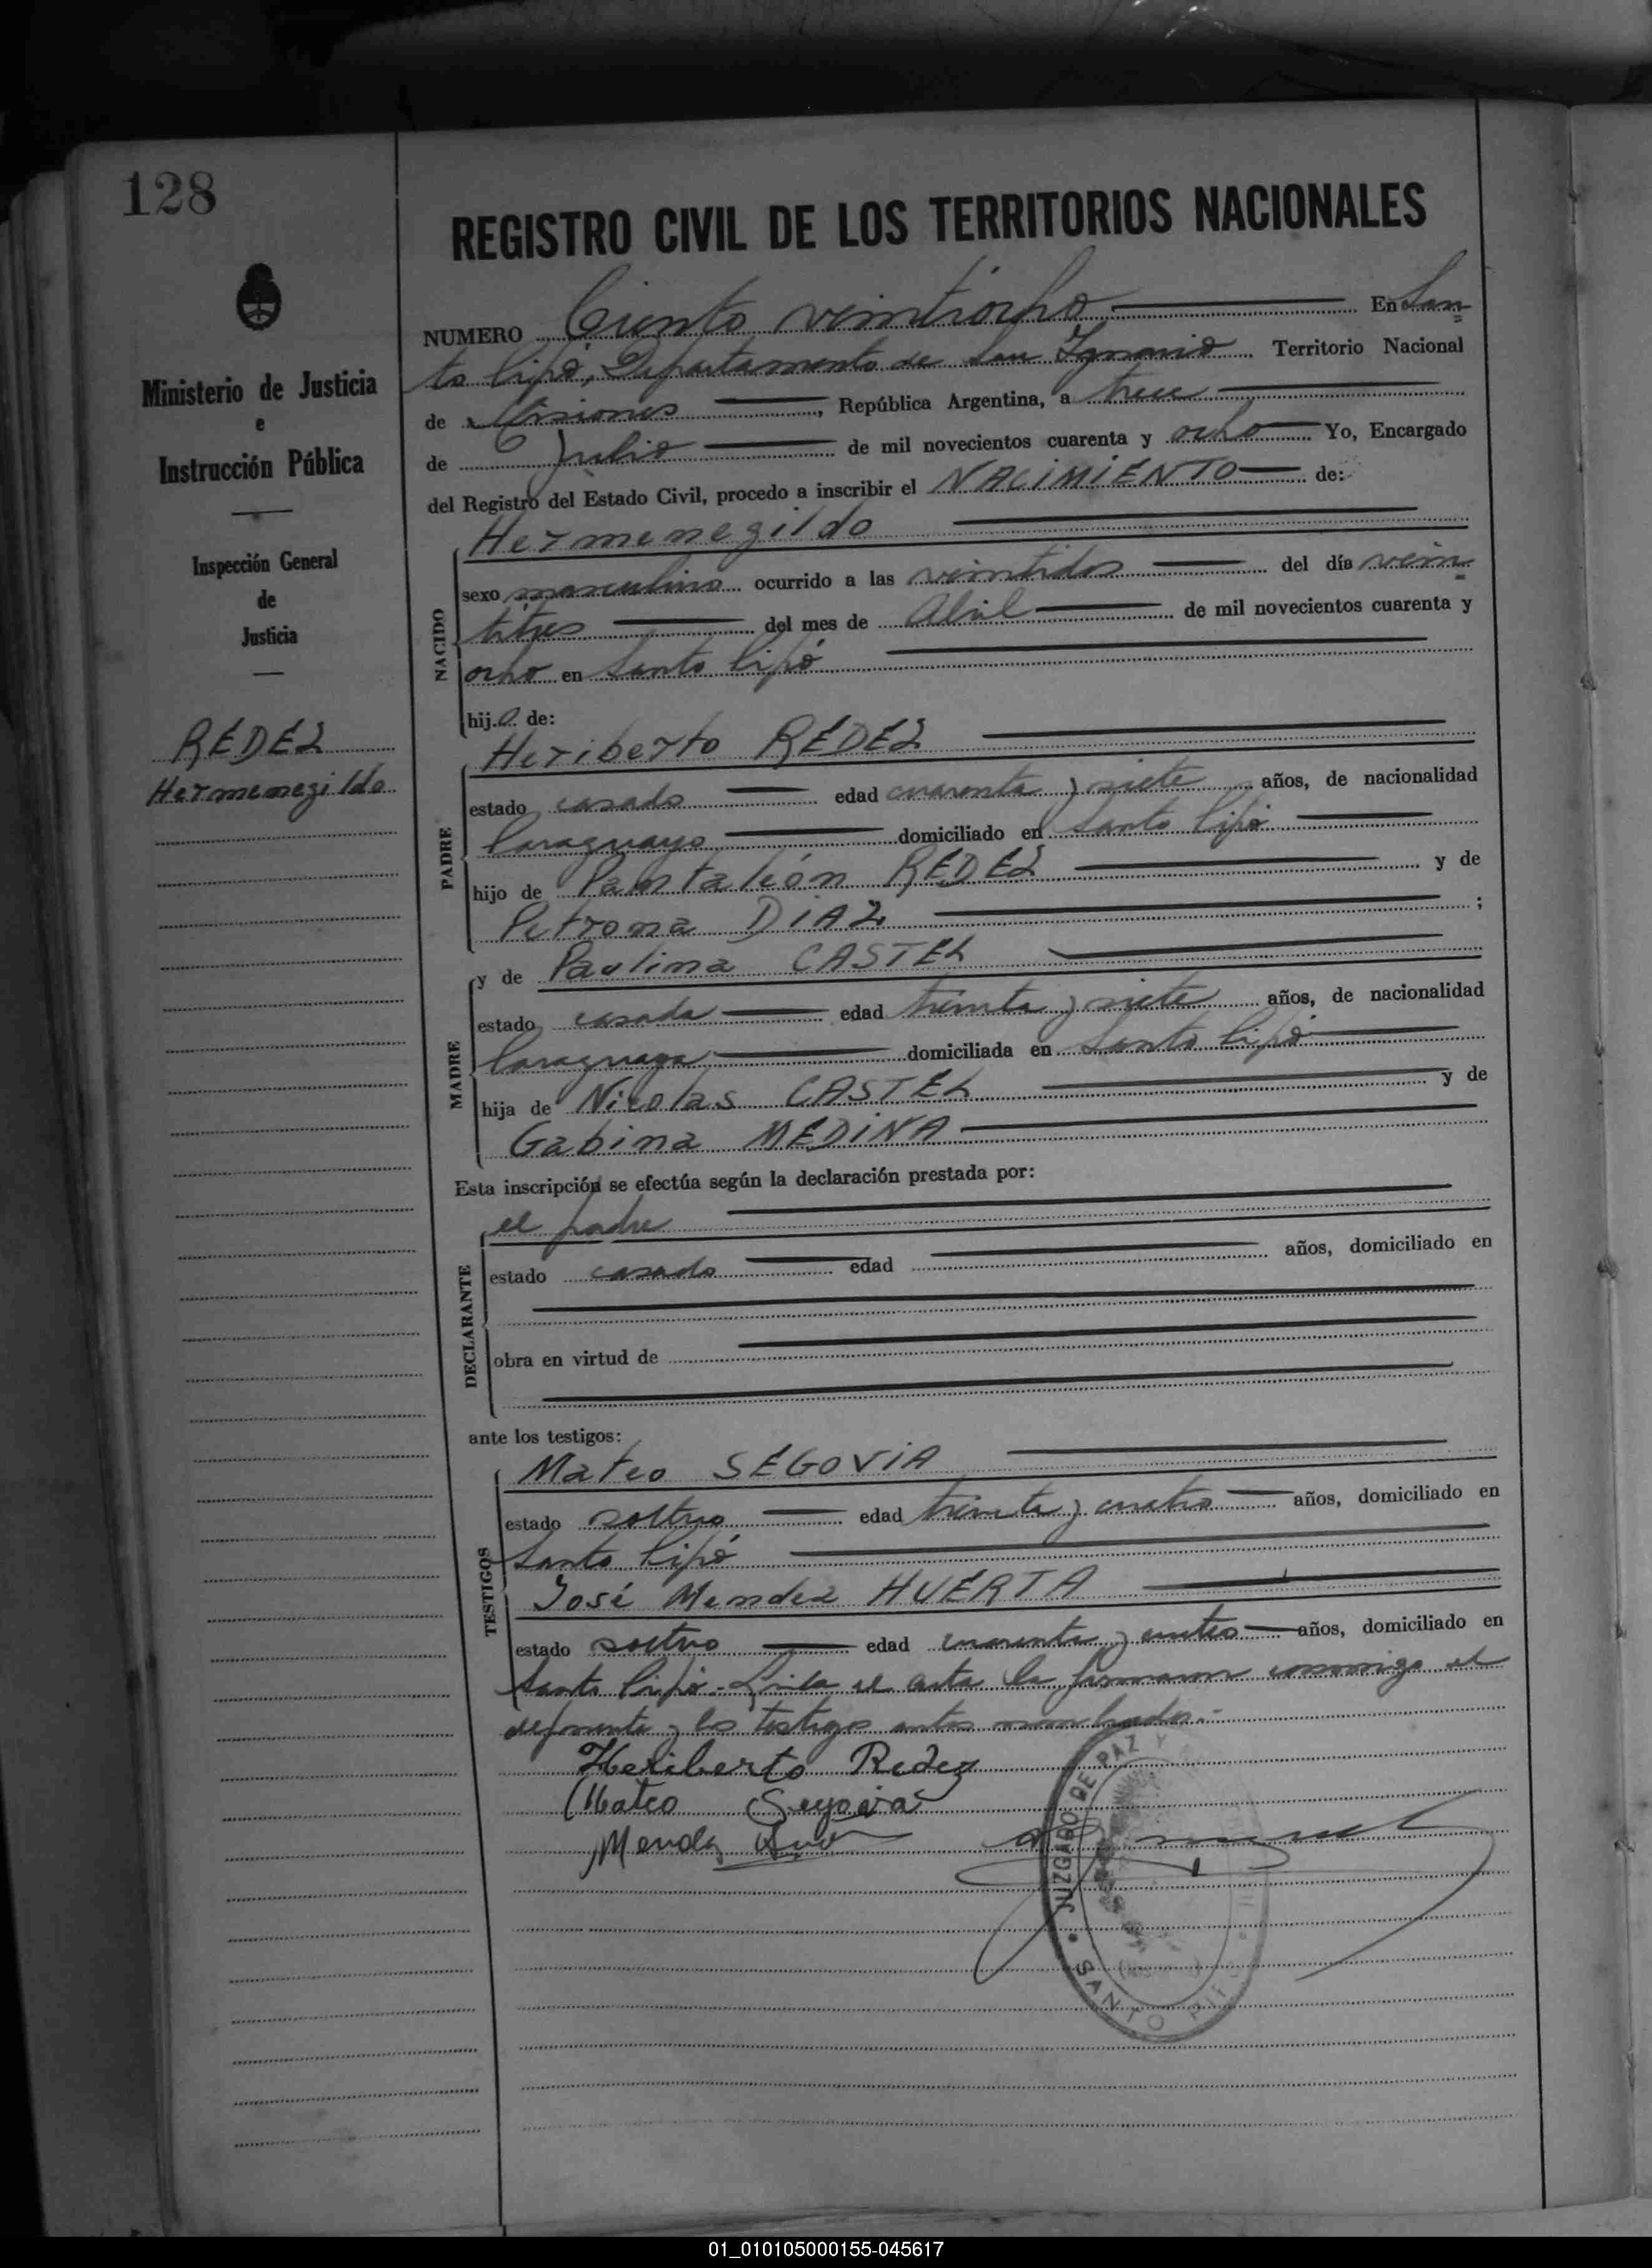 128
REGISTRO CIVIL DE LOS TERRITORIOS NACIONALES
NUMERO Ciento veintiocho En San-
to Pipó, Departamento de San Ignacio Territorio Nacional
de Misiones, República Argentina, a trece
de Julio de mil novecientos cuarenta y ocho Yo, Encargado
del Registro del Estado Civil, procedo a inscribir el NACIMIENTO de:
Ministerio de Justicia
e
Instrucción Pública
Inspección General
de
Justicia
REDEZ
Hermenegildo
NACIDO
Hermenegildo
sexo masculino ocurrido a las veintidos del día vein-
titres del mes de Abril de mil novecientos cuarenta y
ocho en Santo Pipó
hijo de:
PADRE
Heriberto REDEZ
estado casado edad cuarenta y siete años, de nacionalidad
Paraguayo domiciliado en Santo Pipó
hijo de Pantaleón REDEZ y de
Petrona DIAZ ;
MADRE
y de Paulina CASTEL
estado casada edad treinta y siete años, de nacionalidad
Paraguaya domiciliada en Santo Pipó
hija de Nicolas CASTEL y de
Gabina MEDINA
Esta inscripción se efectúa según la declaración prestada por:
DECLARANTE
el padre
estado casado edad años, domiciliado en
obra en virtud de
ante los testigos:
TESTIGOS
Mateo SEGOVIA
estado soltero edad treinta y cuatro años, domiciliado en
Santo Pipó
José Mendez HUERTA
estado soltero edad cuarenta y cuatro años, domiciliado en
Santo Pipó.- Leída el acta la firmaron conmigo el
deponente y los testigos antes nombrados.-
Heriberto Redez
Mateo Segovia
Mendez
JUZGADO DE PAZ Y
SANTO PIPO
01_010105000155-045617